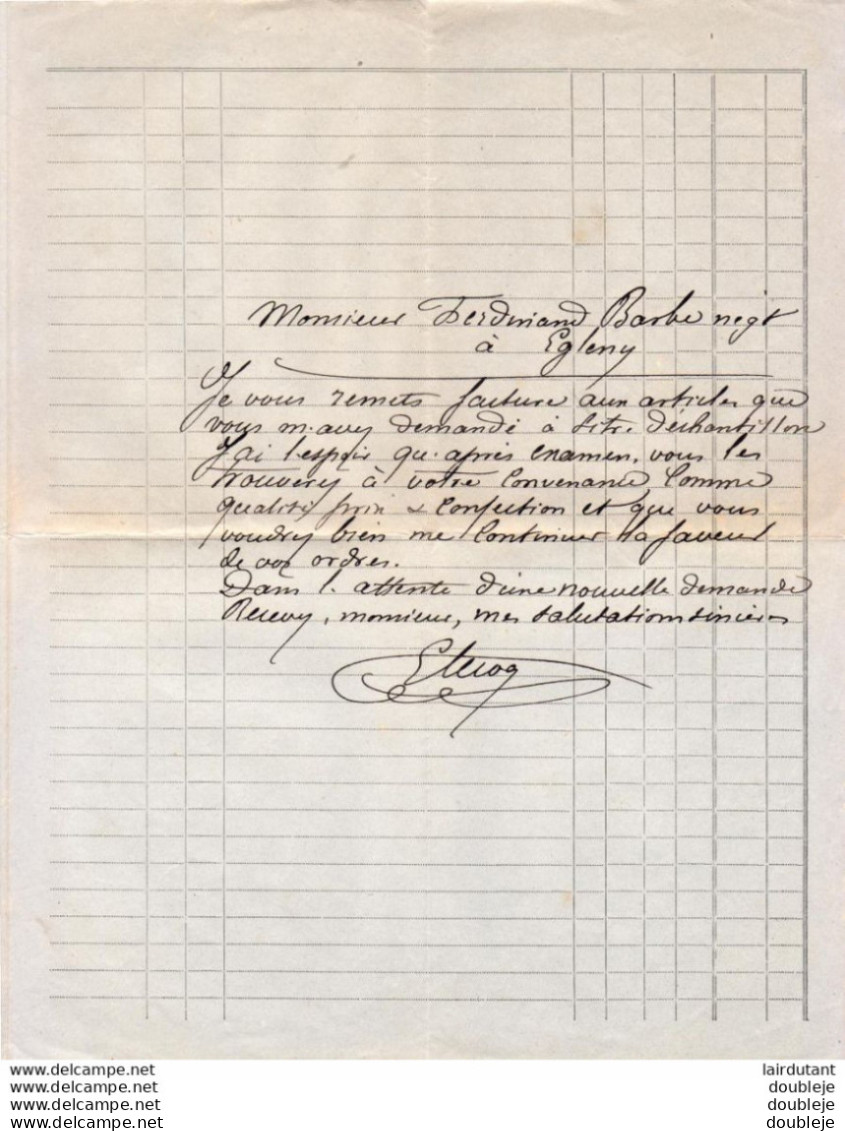 Monsieur Ferdinand Barbe négt
à Egleny
Je vous remets facture aux articles que
vous m'avez demandé à titre d'échantillon
J'ai l'espoir qu'après examen, vous les
trouverez à votre convenance comme
qualité prix & confection et que vous
voudrez bien me continuer la faveur
de vos ordres.
Dans l'attente d'une nouvelle demande
Recevez, monsieur, mes salutations sincères
www.delcampe.net
www.delcampe.net
www.delcampe.net
www.delcampe.net
lairdutant
doubleje
doubleje
doubleje